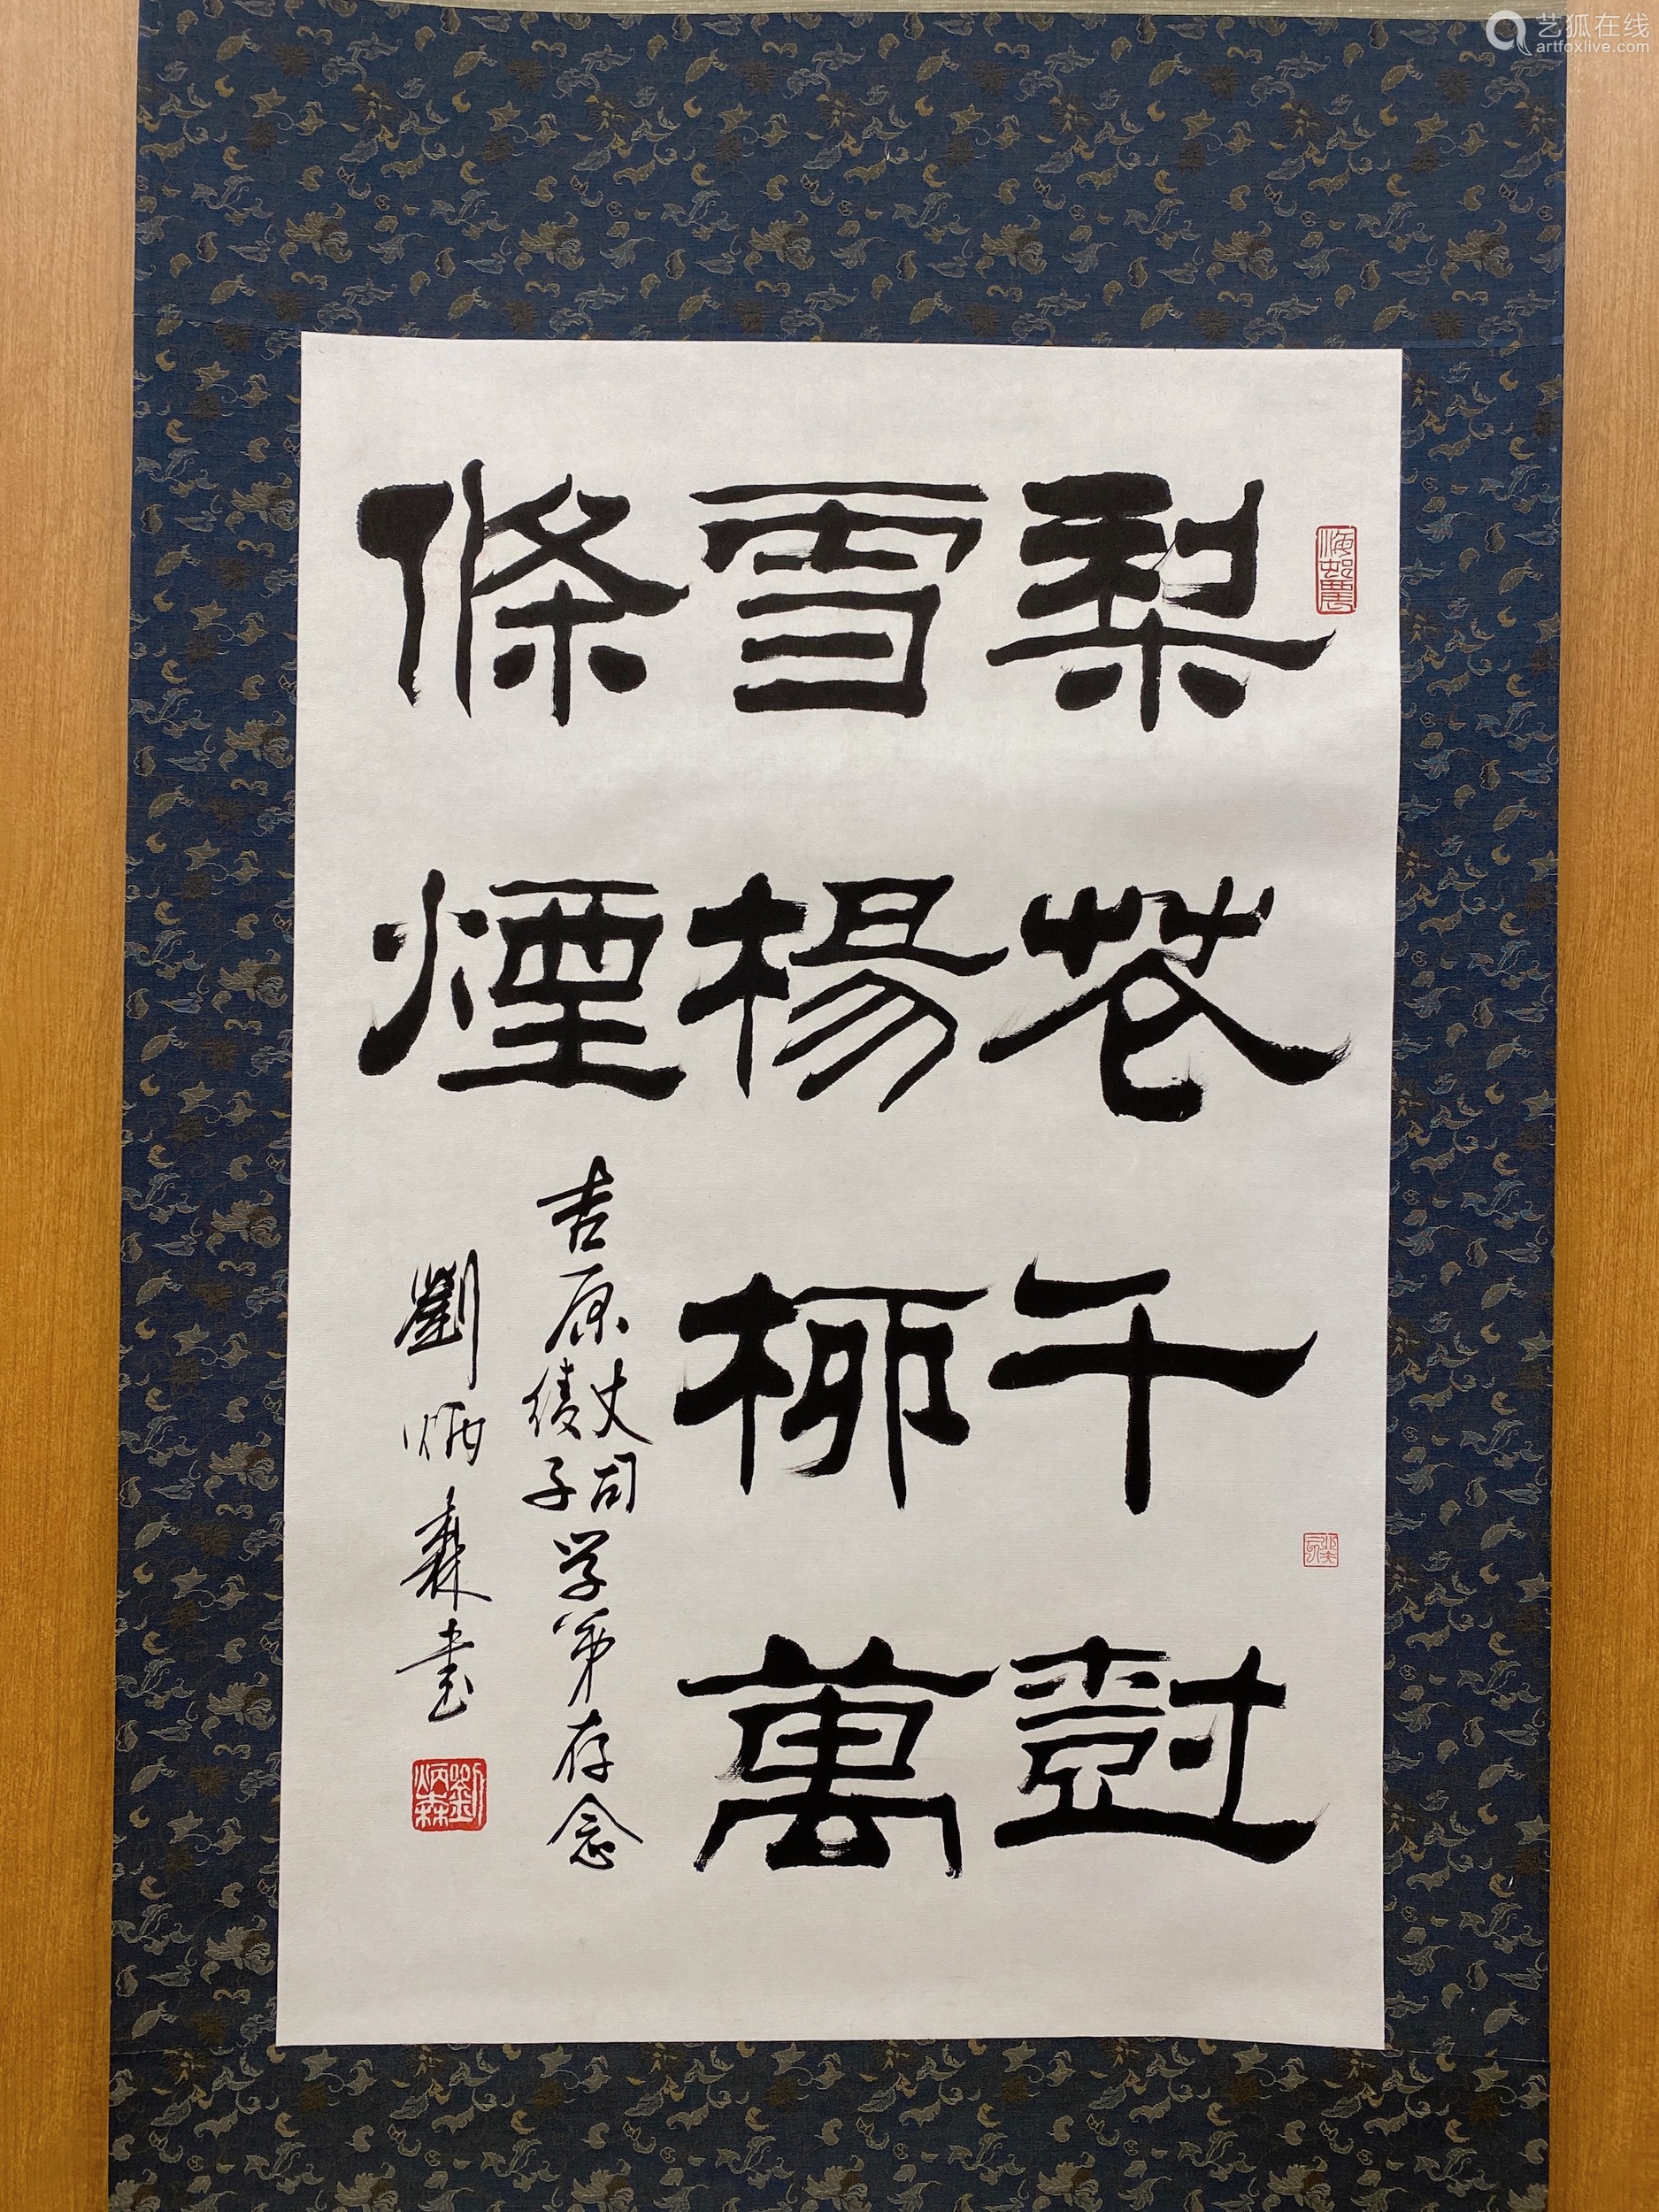 艺狐在线
artfoxlive.com
梨花千樹
雪楊柳萬
條煙
吉原
丈司
綾子
学弟存念
劉炳森書
劉炳森